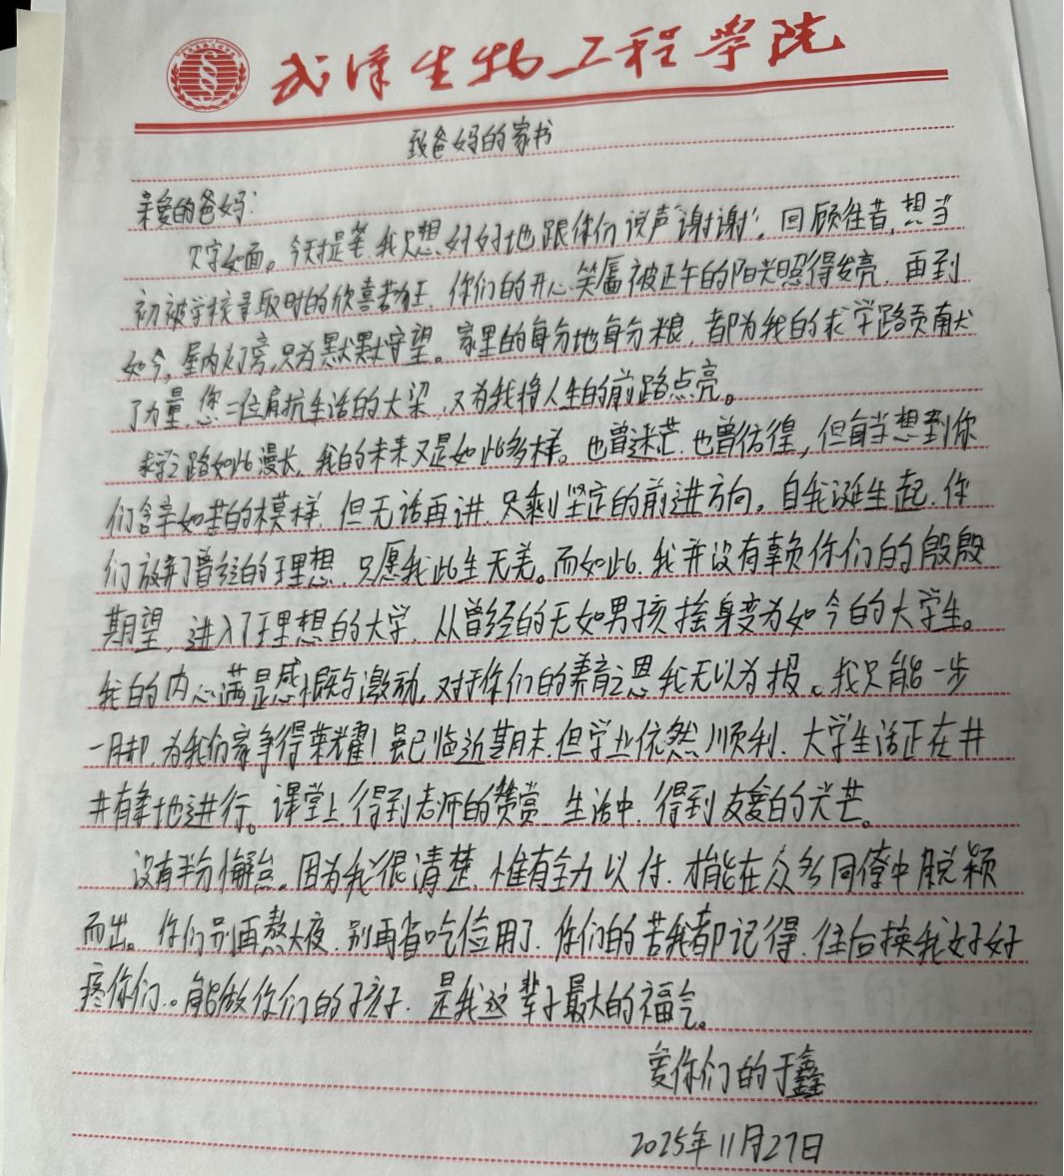 武汉生物工程学院
致爸妈的家书
亲爱的爸妈:
见字如面。今天提笔,我只想好好地跟你们说声"谢谢"。回顾往昔,想当
初被学校录取时的欣喜若狂,你们的开心笑靥被正午的阳光照得发亮,再到
如今,屋内灯亮,只为默默守望。家里的每分地每分粮,都为我的求学路贡献
了力量,您二位肩抗生活的大梁,又为我将人生的前路点亮。
求学之路如此漫长,我的未来又是如此多样。也曾迷茫,也曾彷徨,但每当想到你
们含辛如苦的模样,但无话再讲,只剩坚定的前进方向。自我诞生起,你
们放弃了曾经的理想,只愿我此生无恙。而如此,我并没有辜负你们的殷殷
期望,进入了理想的大学,从曾经的无知男孩摇身变为如今的大学生。
我的内心满是感慨与激动,对于你们的养育之恩我无以为报。我只能一步
一脚,为我们家争得荣耀!虽已临近期末,但学业依然顺利,大学生活正在井
井有条地进行。课堂上,得到老师的赞赏,生活中,得到友爱的光芒。
没有半分懈怠。因为我很清楚,惟有全力以付,才能在众多同僚中脱颖
而出。你们别再熬大夜,别再省吃俭用了,你们的苦我都记得,往后换我好好
疼你们。能做你们的孩子,是我这辈子最大的福气。
爱你们的于鑫
2025年11月27日